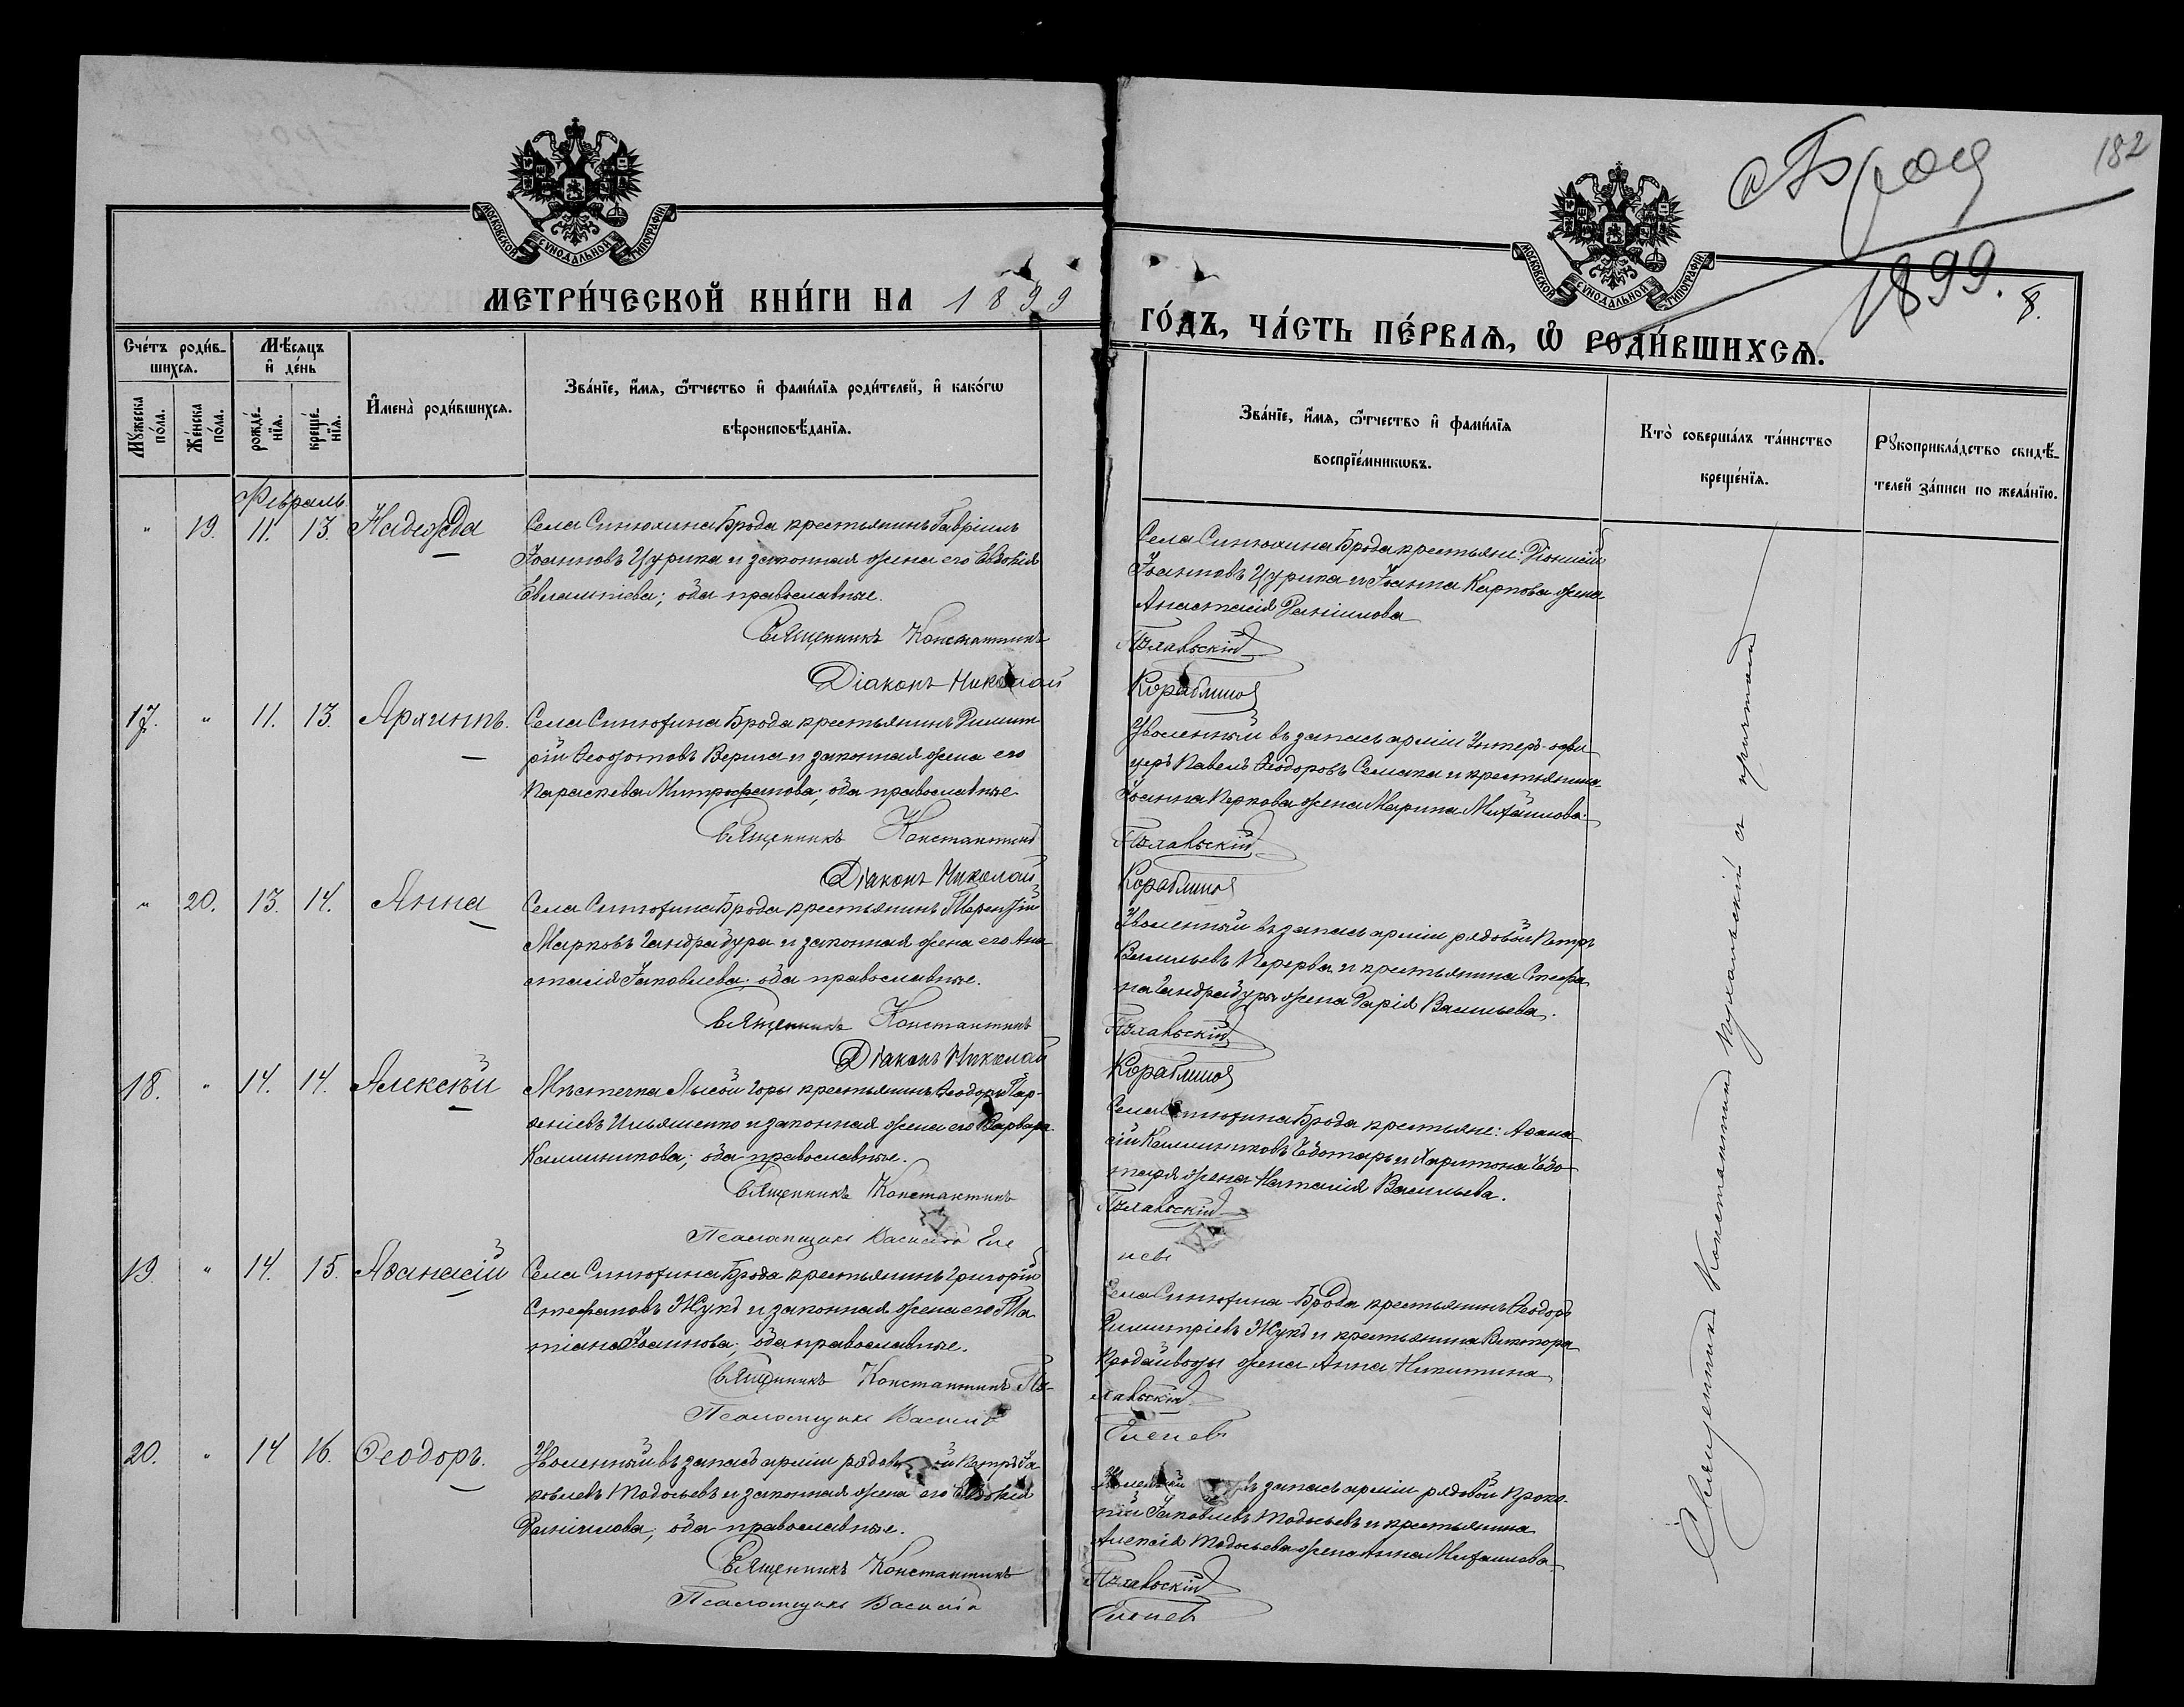 182
с Брод
1899.
8.
МОСКОВСКОЙ СѴНОДАЛЬНОЙ ТИПОГРАФІИ
МОСКОВСКОЙ СѴНОДАЛЬНОЙ ТИПОГРАФІИ
МЕТРИ́ЧЕСКОЙ КНИ́ГИ НА 1899
ГО́ДЪ, ЧА́СТЬ ПЕ́РВАѦ, Ѡ҆ РОДИ́ВШИХСѦ.
Сче́тъ роди́в-
шихсѧ.
Мѣ́сѧцъ
и҆ де́нь
Мꙋ́жеска
по́ла.
Же́нска
по́ла.
рожде́-
нїѧ.
креще́-
нїѧ.
И҆мена̀ роди́вшихсѧ.
Зва́нїе, и҆́мѧ, ѻ҆́тчество и҆ фами́лїѧ роди́телей, и҆ како́гѡ
вѣроисповѣ́данїѧ.
Зва́нїе, и҆́мѧ, ѻ҆́тчество и҆ фами́лїѧ
воспрїе́мникѡвъ.
Кто̀ соверша́лъ та́инство
креще́нїѧ.
Рꙋкоприкла́дство свидѣ́-
телей за́писи по жела́нїю.
Февраль
" 19. 11. 13. Надежда
Села Синюхина Брода крестьянинъ Гавріилъ
Іоанновъ Цурика и законная жена его Евдокія
Евлампіева; оба православные.
Священникъ Константинъ
Діаконъ Николай
Села Синюхина Брода крестьяне: Діонисій
Іоанновъ Цурика и Іоанна Карпова жена
Анастасія Даніилова
Пухальскій
Кораблинов
17. " 11. 13. Архиппъ.
Села Синюхина Брода крестьянинъ Димит-
рій Ѳеодотовъ Верига и законная жена его
Параскева Митрофанова; оба православные
Священникъ Константинъ
Діаконъ Николай
Уволенный въ запасъ арміи Унтеръ-офи
церъ Павелъ Ѳеодоровъ Семака и крестьянина
Іоанна жена Марина Михайлова
Пухальскій
Кораблинов
" 20. 13. 14. Анна
Села Синюхина Брода крестьянинъ Терентій
Марковъ Гандрабура и законная жена его Ана-
стасія Іаковлева; оба православные.
Священникъ Константинъ
Діаконъ Николай
Уволенный въ запасъ арміи рядовой Петръ
Васильевъ Перерва и крестьянина Стефа
на Гандрабуры жена Дарія Васильева.
Пухальскій
Кораблинов
18. " 14. 14. Алексѣй
Мѣстечка Лысой Горы крестьянинъ Ѳеодоръ Пар-
ѳеніевъ Ильяшенко и законная жена его Варвара
Каллиникова; оба православные.
Священникъ Константинъ
Псаломщикъ Василій
Села Синюхина Брода крестьяне: Аѳана
сій Каллиниковъ Чеботарь и Харитона Чебо-
таря жена Наталія Васильева.
Пухальскій
19. " 14. 15. Аѳанасій
Села Синюхина Брода крестьянинъ Григорій
Стефановъ Жукъ и законная жена его Та-
тіана Іоаннова; оба православные.
Священникъ Константинъ Пу-
Псаломщикъ Василій
Села Синюхина Брода крестьянинъ Ѳеодоръ
Димитріевъ Жукъ и крестьянина Виктора
Продайводы жена Анна Никитина
хальскій
20. " 14 16. Ѳеодоръ.
Уволенный въ запасъ арміи рядовой Петръ Іа
ковлевъ Тодосьевъ и законная жена его Евдокія
Даніилова; оба православные.
Священникъ Константинъ
Псаломщикъ Василій
Уволенный въ запасъ арміи рядовой Проко-
пій Іаковлевъ Тодосьевъ и крестьянина
Алексія Тодосьева жена Анна Михаилова
Пухальскій
Священникъ Константинъ Пухальскій с причтомъ